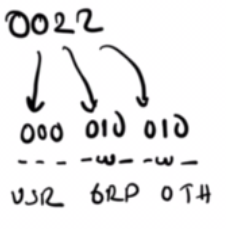 0022
000 010 010
--- -w- -w-
USR GRP OTH